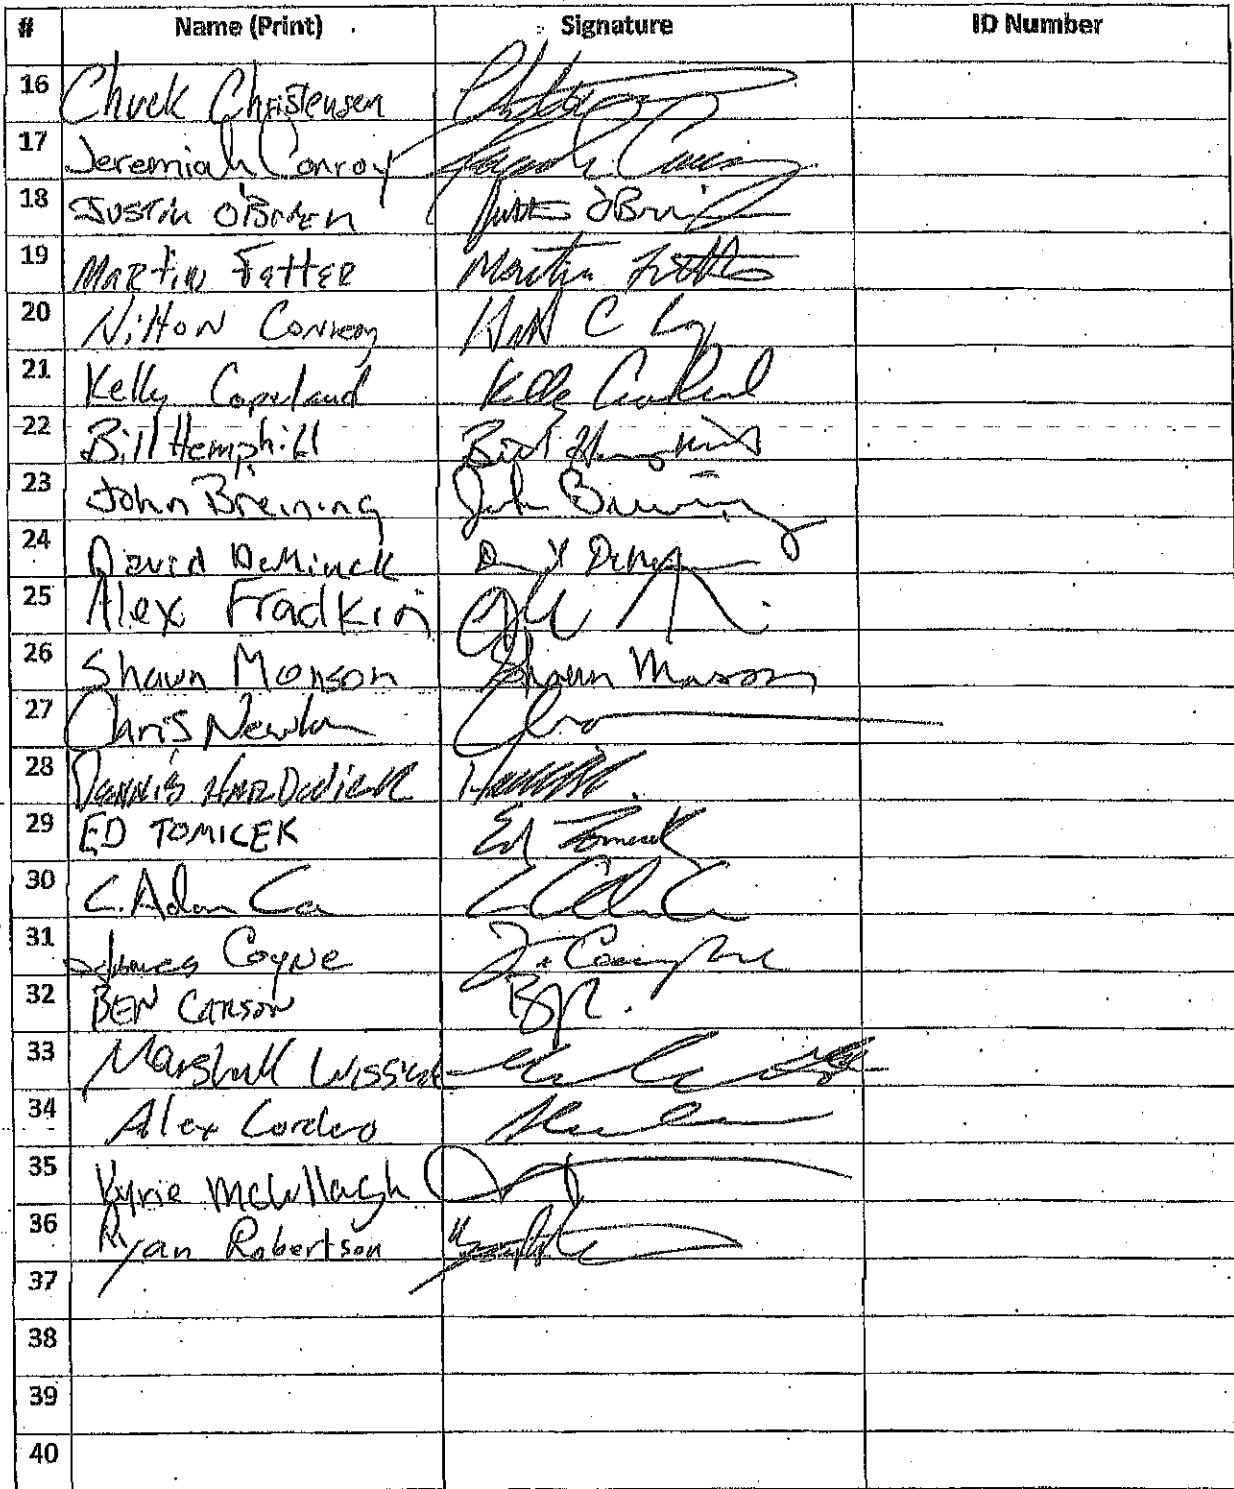 # Name (Print) Signature ID Number
16 Chuck Christensen
17 Jeremiah Conroy
18 Justin O'Brien Justin O'Bri
19 Martin Fetter Martin Fetter
20 Conroy
21 Kelly Copeland Kelly Copeland
22 Bill Hemphill Bill Hemphill
23 John Breining John Breining
24 David DeMinck
25 Alex Fradkin
26 Shawn Monson Shawn Monson
27 Chris Newton
28 Dennis Hardwick
29 ED TOMICEK Ed Tomicek
30 C. Adam Ca
31 James Coyne
32 BEN CARSON
33 Marshall
34 Alex Cordero
35 Kyrie McCullagh
36 Ryan Robertson
37
38
39
40